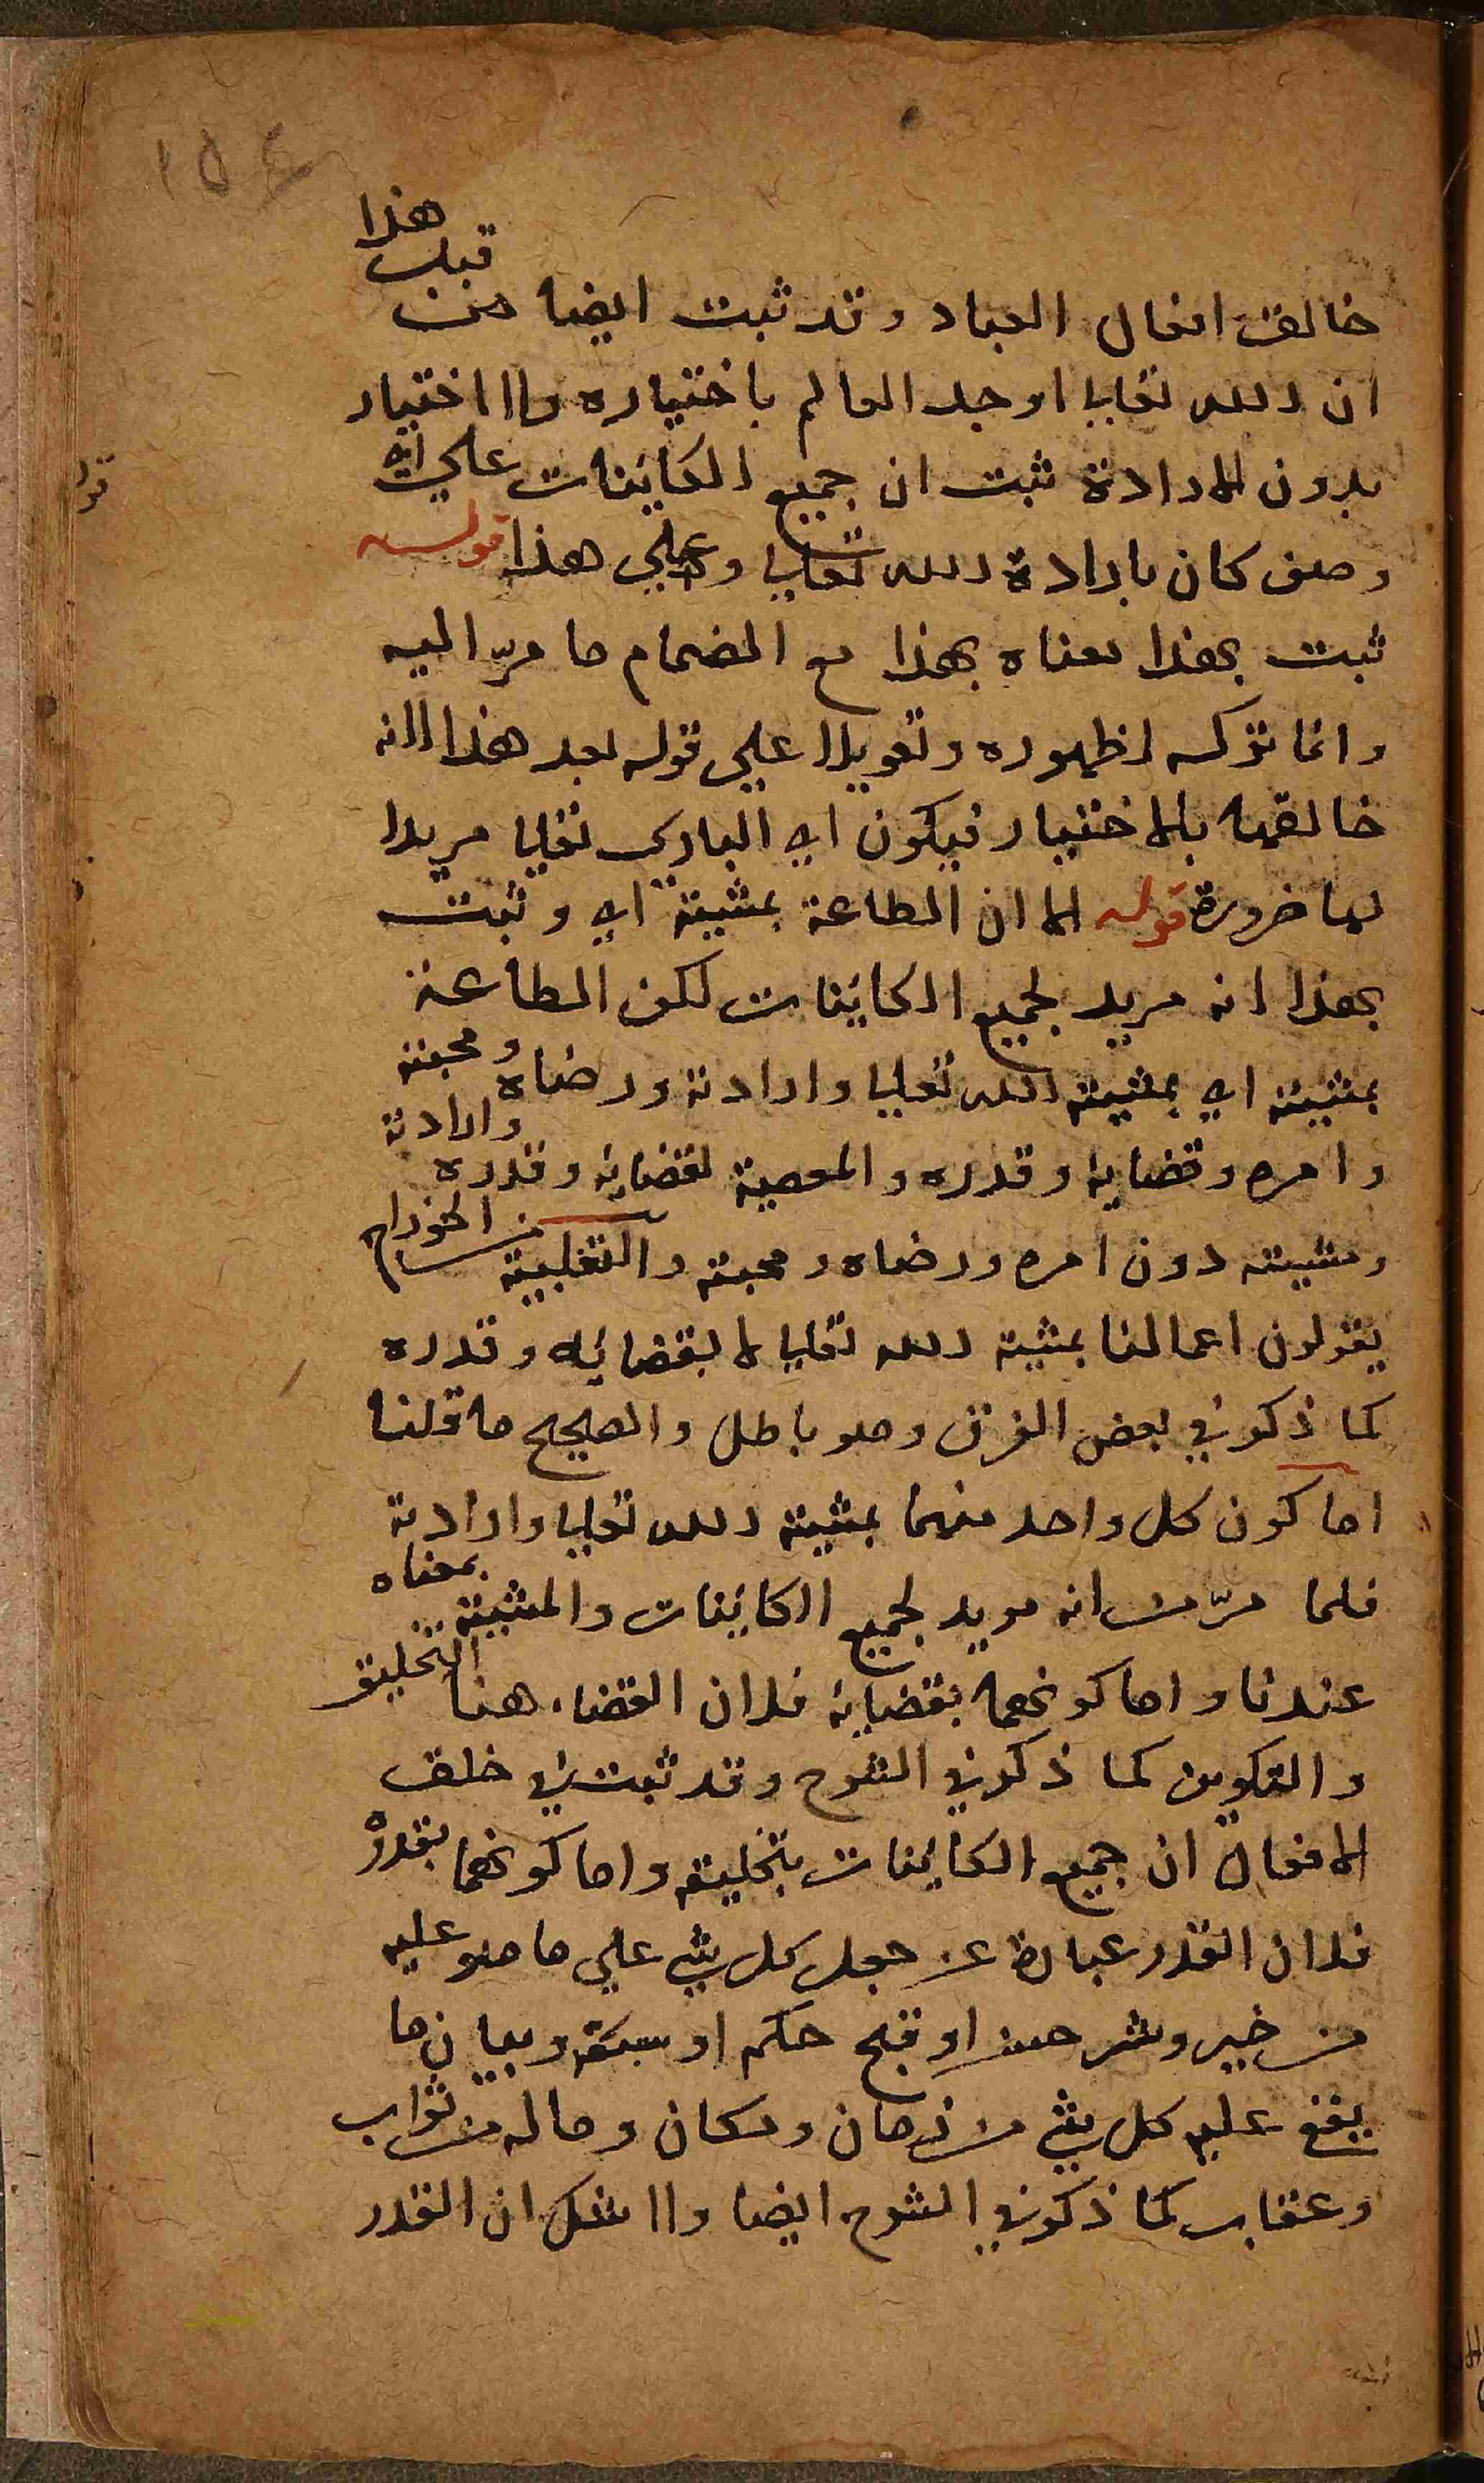 ١٥٤
خالق افعال العباد وقد ثبت ايضا من قبل هذا
ان الله تعالي اوجد العالم باختياره ولا اختيار
بدون الارادة ثبت ان جميع الكاينات علي اي
وصف كان بارادة الله تعالي وعلي هذا قوله
ثبت بهذا معناه بهذا مع انضمام ما مرّ اليه
وانما تركه لظهوره وتعويلا علي قوله بعد هذا لانه
خالقها بالاختيار فيكون اي الباري تعالي مريدا
لها ضرورة قوله الا ان الطاعة بمشيته اي وثبت
بهذا انه مريد لجميع الكاينات لكن الطاعة
بمشيته اي بمشيته الله تعالي وارادته ورضاه ومحبته
وامره وقضايه وقدره والمعصية بقضايه وقدره وارادته
ومشيته دون امره ورضاه ومحبته والثعلبية من الخوراج
يقولون اعمالنا بمشية الله تعالي لا بقضائه وقدره
كما ذكر في بعض الفرق وهو باطل والصحيح ما قلنا
اما كون كل واحد منهما بمشية الله تعالي وارادته
فلما مرّ من انه مريد لجميع الكاينات والمشيئة بمعناه
عندنا واما كونهما بقضايه فلان القضاء هنا التخليق
والتكوين كما ذكر في الشرح وقد ثبت في خلق
الافعال ان جميع الكاينات بتخليقه واما كونهما بقدره
فلان القدر عبارة عن جعل كل شي علي ما هو عليه
من خير وشر حسن او قبح حكم او سفه وبيان ما
يقع عليه كل شي من زمان ومكان وماله من ثواب
وعقاب كما ذكر في الشرح ايضا ولا شك ان القدر